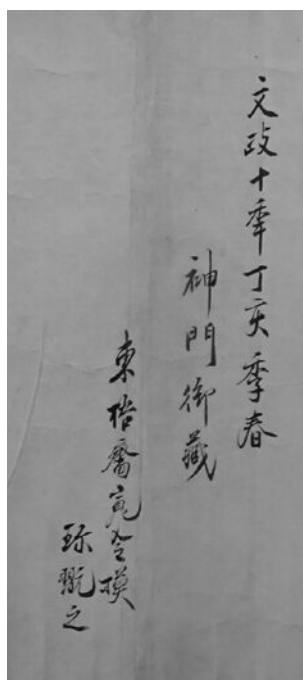 文政十年丁亥季春
神門御藏
東皆齋寛令摸
珎翫之